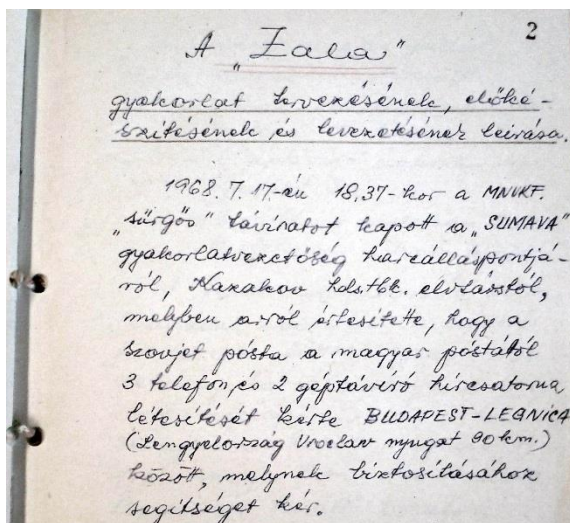 2
A „Zala”
gyakorlat tervezésének, előké-
szítésének és levezetésének leirása.
1968. 7. 17-én 18,37-kor a MNVKF.
„sürgős” táviratot kapott a „SUMAVA”
gyakorlatvezetőség harcálláspontjá-
ról, Kazakov hds.tbk. elvtárstól,
melyben arról értesitette, hogy a
szovjet pósta a magyar póstától
3 telefon, és 2 géptávíró hírcsatorna
létesitését kérte BUDAPEST-LEGNICA
(Lengyelország Vroclav nyugat 90 km.)
között, melynek biztositásához
segitséget kér.